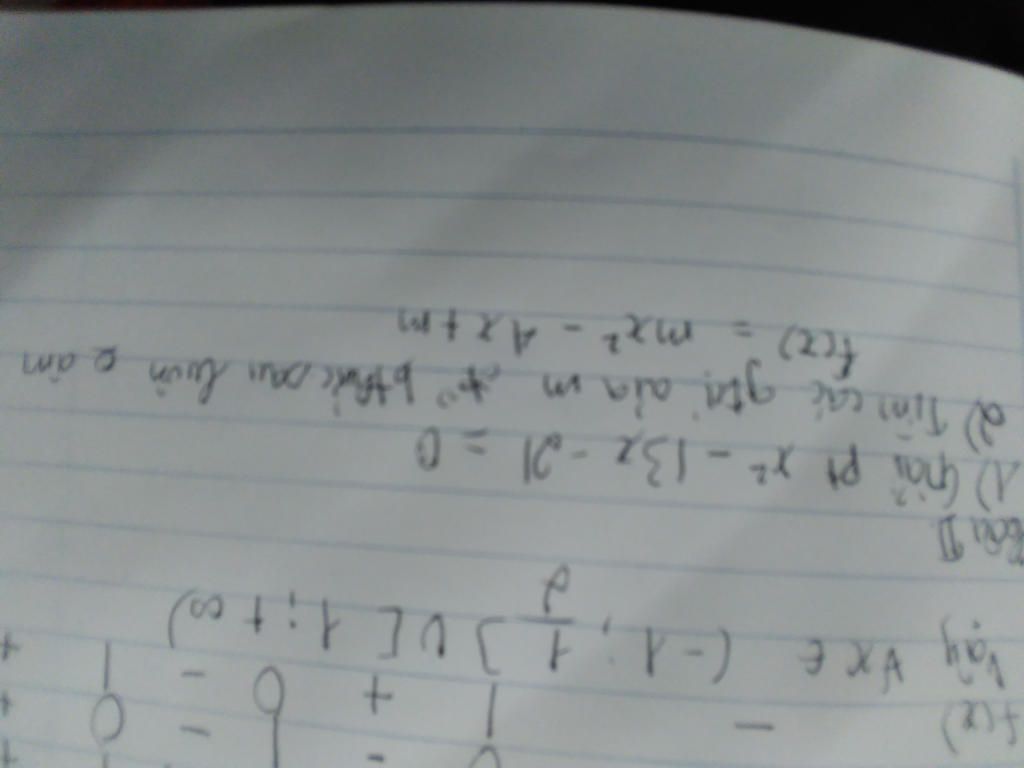 + -
f(x) - + 0 - 0 +
Vậy ∀x ∈ (-1; 1/2] ∪ [1; +∞)
Bài II
1) Giải pt x² - 13x - 21 = 0
2) Tìm các gtrị của m bthức sau luôn âm
f(x) = mx² - 4x + m